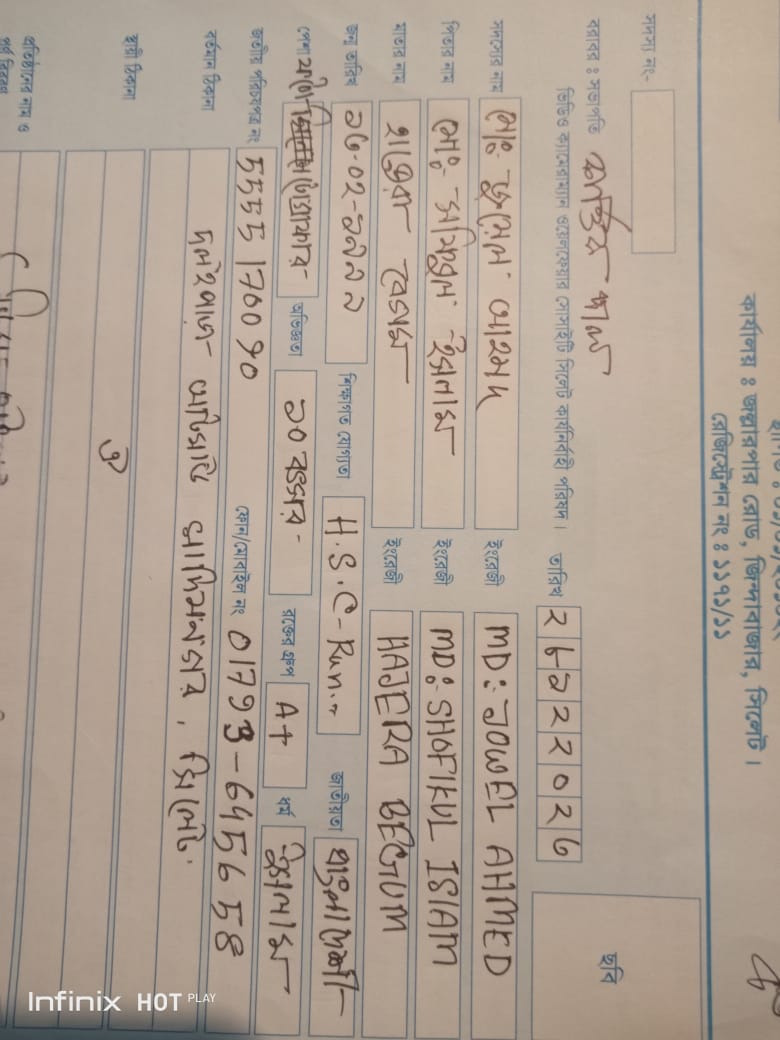 কার্যালয় ঃ জল্লারপার রোড, জিন্দাবাজার, সিলেট।
রেজিস্ট্রেশন নং ঃ ১১৭১/১১
সদস্য নং-
ছবি
বরাবর ঃ সভাপতি কার্ত্তিক পাল
ভিডিও ক্যামেরাম্যান ওয়েলফেয়ার সোসাইটি সিলেট কার্যনির্বাহী পরিষদ। তারিখ ২৮১২২০২৩
সদস্যের নাম মোঃ জুয়েল আহমদ ইংরেজী MD: JOWEL AHMED
পিতার নাম মোঃ- সফিকুল ইসলাম ইংরেজী MD: SHOFIKUL ISlAM
মাতার নাম হাজেরা বেগম ইংরেজী HAJERA BEGUM
জন্ম তারিখ ১৩-০২-১৯৯৯ শিক্ষাগত যোগ্যতা H.S.C-Run.. জাতীয়তা বাংলাদেশী
পেশা ফটোগ্রাফার- অভিজ্ঞতা ১০ বৎসর- রক্তের গ্রুপ A+ ধর্ম ইসলাম
জাতীয় পরিচয়পত্র নং 5555170090 ফোন/মোবাইল নং 01793-645658
বর্তমান ঠিকানা দলইপাড়া খাদিমনগর, সিলেট
স্থায়ী ঠিকানা ঐ
প্রতিষ্ঠানের নাম ও
পূর্ণ বিবরণ
Infinix HOT PLAY